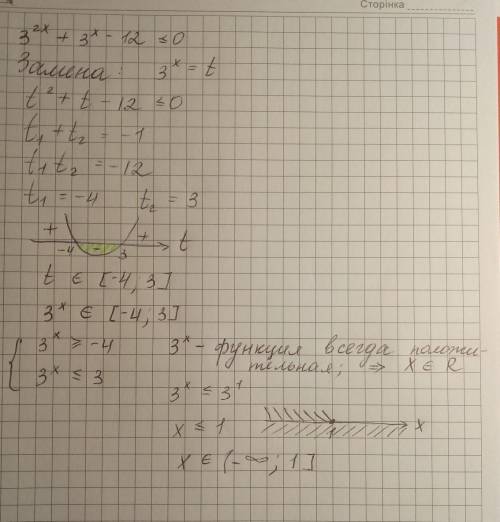 Сторінка
3^{2x} + 3^x - 12 ≤ 0
Замена: 3^x = t
t^2 + t - 12 ≤ 0
t_1 + t_2 = -1
t_1 t_2 = -12
t_1 = -4 t_2 = 3
+ - +
-4 3 t
t ∈ [-4, 3]
3^x ∈ [-4; 3]
{ 3^x ≥ -4 3^x - функция всегда положи-
тельная; ⇒ x ∈ R
3^x ≤ 3 3^x ≤ 3^1
x ≤ 1 1 x
x ∈ (-∞; 1]